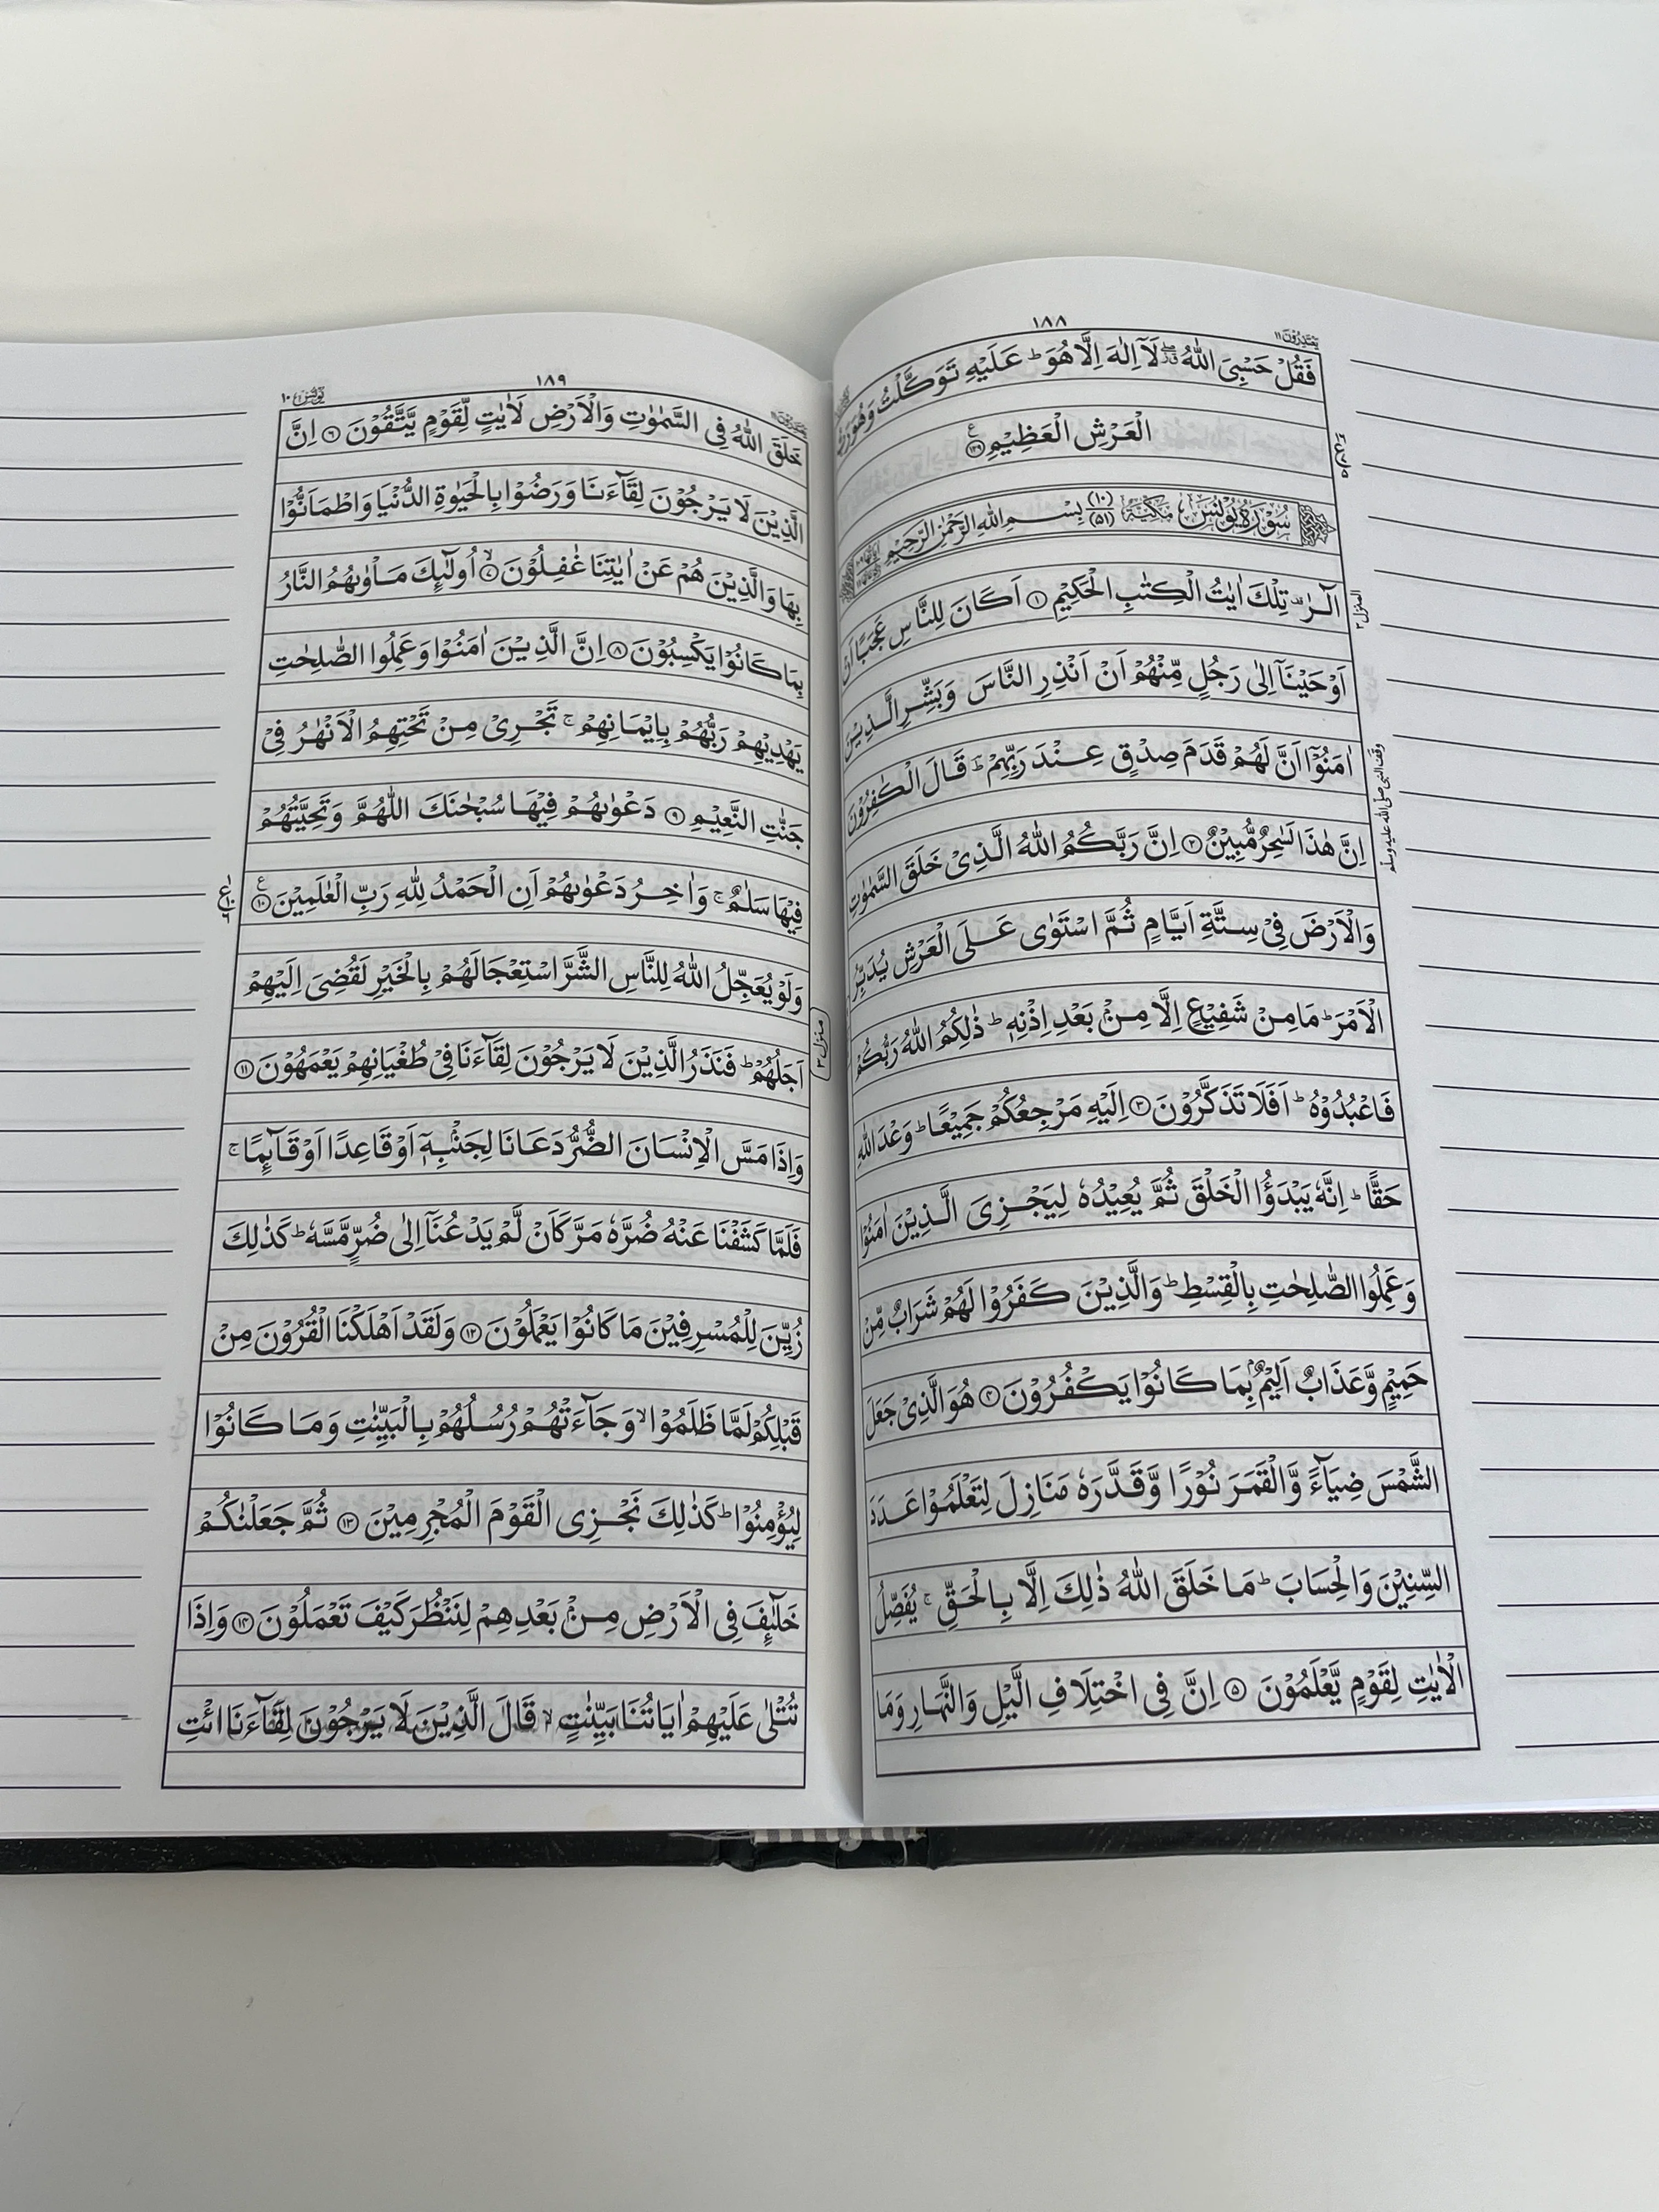 ١٨٨
يَعْتَذِرُوْنَ ١١
فَقُلْ حَسْبِىَ اللّٰهُ لَآ اِلٰهَ اِلَّا هُوَ ؕ عَلَيْهِ تَوَكَّلْتُ وَهُوَ رَبُّ
الْعَرْشِ الْعَظِيْمِ ۱۲۹ ع
سُوْرَةُ يُوْنُسَ مَكِّيَّةٌ (١٠) (٥١) بِسْمِ اللّٰهِ الرَّحْمٰنِ الرَّحِيْمِ
الٓرٰ تِلْكَ اٰيٰتُ الْكِتٰبِ الْحَكِيْمِ ۱ اَكَانَ لِلنَّاسِ عَجَبًا اَنْ
المنزل ٣
اَوْحَيْنَآ اِلٰى رَجُلٍ مِّنْهُمْ اَنْ اَنْذِرِ النَّاسَ وَبَشِّرِ الَّذِيْنَ
اٰمَنُوْٓا اَنَّ لَهُمْ قَدَمَ صِدْقٍ عِنْدَ رَبِّهِمْ ؕ قَالَ الْكٰفِرُوْنَ
وقف النبی صلی الله علیه وسلم
اِنَّ هٰذَا لَسٰحِرٌ مُّبِيْنٌ ۲ اِنَّ رَبَّكُمُ اللّٰهُ الَّذِىْ خَلَقَ السَّمٰوٰتِ
وَالْاَرْضَ فِىْ سِتَّةِ اَيَّامٍ ثُمَّ اسْتَوٰى عَلَى الْعَرْشِ يُدَبِّرُ
الْاَمْرَ ؕ مَا مِنْ شَفِيْعٍ اِلَّا مِنْۢ بَعْدِ اِذْنِهٖ ؕ ذٰلِكُمُ اللّٰهُ رَبُّكُمْ
فَاعْبُدُوْهُ ؕ اَفَلَا تَذَكَّرُوْنَ ۳ اِلَيْهِ مَرْجِعُكُمْ جَمِيْعًا ؕ وَعْدَ اللّٰهِ
حَقًّا ؕ اِنَّهٗ يَبْدَؤُا الْخَلْقَ ثُمَّ يُعِيْدُهٗ لِيَجْزِىَ الَّذِيْنَ اٰمَنُوْا
وَعَمِلُوا الصّٰلِحٰتِ بِالْقِسْطِ ؕ وَالَّذِيْنَ كَفَرُوْا لَهُمْ شَرَابٌ مِّنْ
حَمِيْمٍ وَّعَذَابٌ اَلِيْمٌۢ بِمَا كَانُوْا يَكْفُرُوْنَ ۴ هُوَ الَّذِىْ جَعَلَ
الشَّمْسَ ضِيَآءً وَّالْقَمَرَ نُوْرًا وَّقَدَّرَهٗ مَنَازِلَ لِتَعْلَمُوْا عَدَدَ
السِّنِيْنَ وَالْحِسَابَ ؕ مَا خَلَقَ اللّٰهُ ذٰلِكَ اِلَّا بِالْحَقِّ ۚ يُفَصِّلُ
الْاٰيٰتِ لِقَوْمٍ يَّعْلَمُوْنَ ۵ اِنَّ فِى اخْتِلَافِ الَّيْلِ وَالنَّهَارِ وَمَا
١٨٩
يُوْنُسَ ١٠
خَلَقَ اللّٰهُ فِى السَّمٰوٰتِ وَالْاَرْضِ لَاٰيٰتٍ لِّقَوْمٍ يَّتَّقُوْنَ ۶ اِنَّ
الَّذِيْنَ لَا يَرْجُوْنَ لِقَآءَنَا وَرَضُوْا بِالْحَيٰوةِ الدُّنْيَا وَاطْمَاَنُّوْا
بِهَا وَالَّذِيْنَ هُمْ عَنْ اٰيٰتِنَا غٰفِلُوْنَ ۷ۙ اُولٰٓئِكَ مَاْوٰىهُمُ النَّارُ
بِمَا كَانُوْا يَكْسِبُوْنَ ۸ اِنَّ الَّذِيْنَ اٰمَنُوْا وَعَمِلُوا الصّٰلِحٰتِ
يَهْدِيْهِمْ رَبُّهُمْ بِاِيْمَانِهِمْ ۚ تَجْرِىْ مِنْ تَحْتِهِمُ الْاَنْهٰرُ فِىْ
جَنّٰتِ النَّعِيْمِ ۹ دَعْوٰىهُمْ فِيْهَا سُبْحٰنَكَ اللّٰهُمَّ وَتَحِيَّتُهُمْ
فِيْهَا سَلٰمٌ ۚ وَاٰخِرُ دَعْوٰىهُمْ اَنِ الْحَمْدُ لِلّٰهِ رَبِّ الْعٰلَمِيْنَ ۱۰ ع
وَلَوْ يُعَجِّلُ اللّٰهُ لِلنَّاسِ الشَّرَّ اسْتِعْجَالَهُمْ بِالْخَيْرِ لَقُضِىَ اِلَيْهِمْ
اَجَلُهُمْ ؕ فَنَذَرُ الَّذِيْنَ لَا يَرْجُوْنَ لِقَآءَنَا فِىْ طُغْيَانِهِمْ يَعْمَهُوْنَ ۱۱
منزل ٣
وَاِذَا مَسَّ الْاِنْسَانَ الضُّرُّ دَعَانَا لِجَنْۢبِهٖٓ اَوْ قَاعِدًا اَوْ قَآئِمًا ۚ
فَلَمَّا كَشَفْنَا عَنْهُ ضُرَّهٗ مَرَّ كَاَنْ لَّمْ يَدْعُنَآ اِلٰى ضُرٍّ مَّسَّهٗ ؕ كَذٰلِكَ
زُيِّنَ لِلْمُسْرِفِيْنَ مَا كَانُوْا يَعْمَلُوْنَ ۱۲ وَلَقَدْ اَهْلَكْنَا الْقُرُوْنَ مِنْ
قَبْلِكُمْ لَمَّا ظَلَمُوْا ۙ وَجَآءَتْهُمْ رُسُلُهُمْ بِالْبَيِّنٰتِ وَمَا كَانُوْا
لِيُؤْمِنُوْا ؕ كَذٰلِكَ نَجْزِى الْقَوْمَ الْمُجْرِمِيْنَ ۱۳ ثُمَّ جَعَلْنٰكُمْ
خَلٰٓئِفَ فِى الْاَرْضِ مِنْۢ بَعْدِهِمْ لِنَنْظُرَ كَيْفَ تَعْمَلُوْنَ ۱۴ وَاِذَا
تُتْلٰى عَلَيْهِمْ اٰيَاتُنَا بَيِّنٰتٍ ۙ قَالَ الَّذِيْنَ لَا يَرْجُوْنَ لِقَآءَنَا ائْتِ